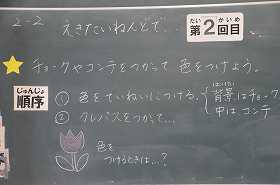 2-2 えきたいねんどで…
だい かいめ
第2回目
チョークやコンテをつかって 色をつけよう。
じゅんじょ
順序
① 色をていねいにつける。
はいけい
背景はチョーク
中は コンテ
② クレパスをつかって…
色を
つけるときは…?